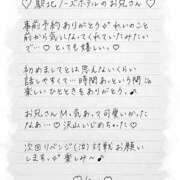 ♡駅近ノースホテルのお兄さん♡
事前予約ありがとう♡れいのこと
前から気になってくれていたみたい
で…♡とっても嬉しい。♡
初めましてとは思えないくらい
話しやすくて…時間あっという間に
楽しいひとときをありがとう。♪
お兄さんM。気あって可愛いかった
なあ…♡沢山いじめちゃった♡
次回リベンジ(?)対戦お願い
しますっ。楽しみ〜♪